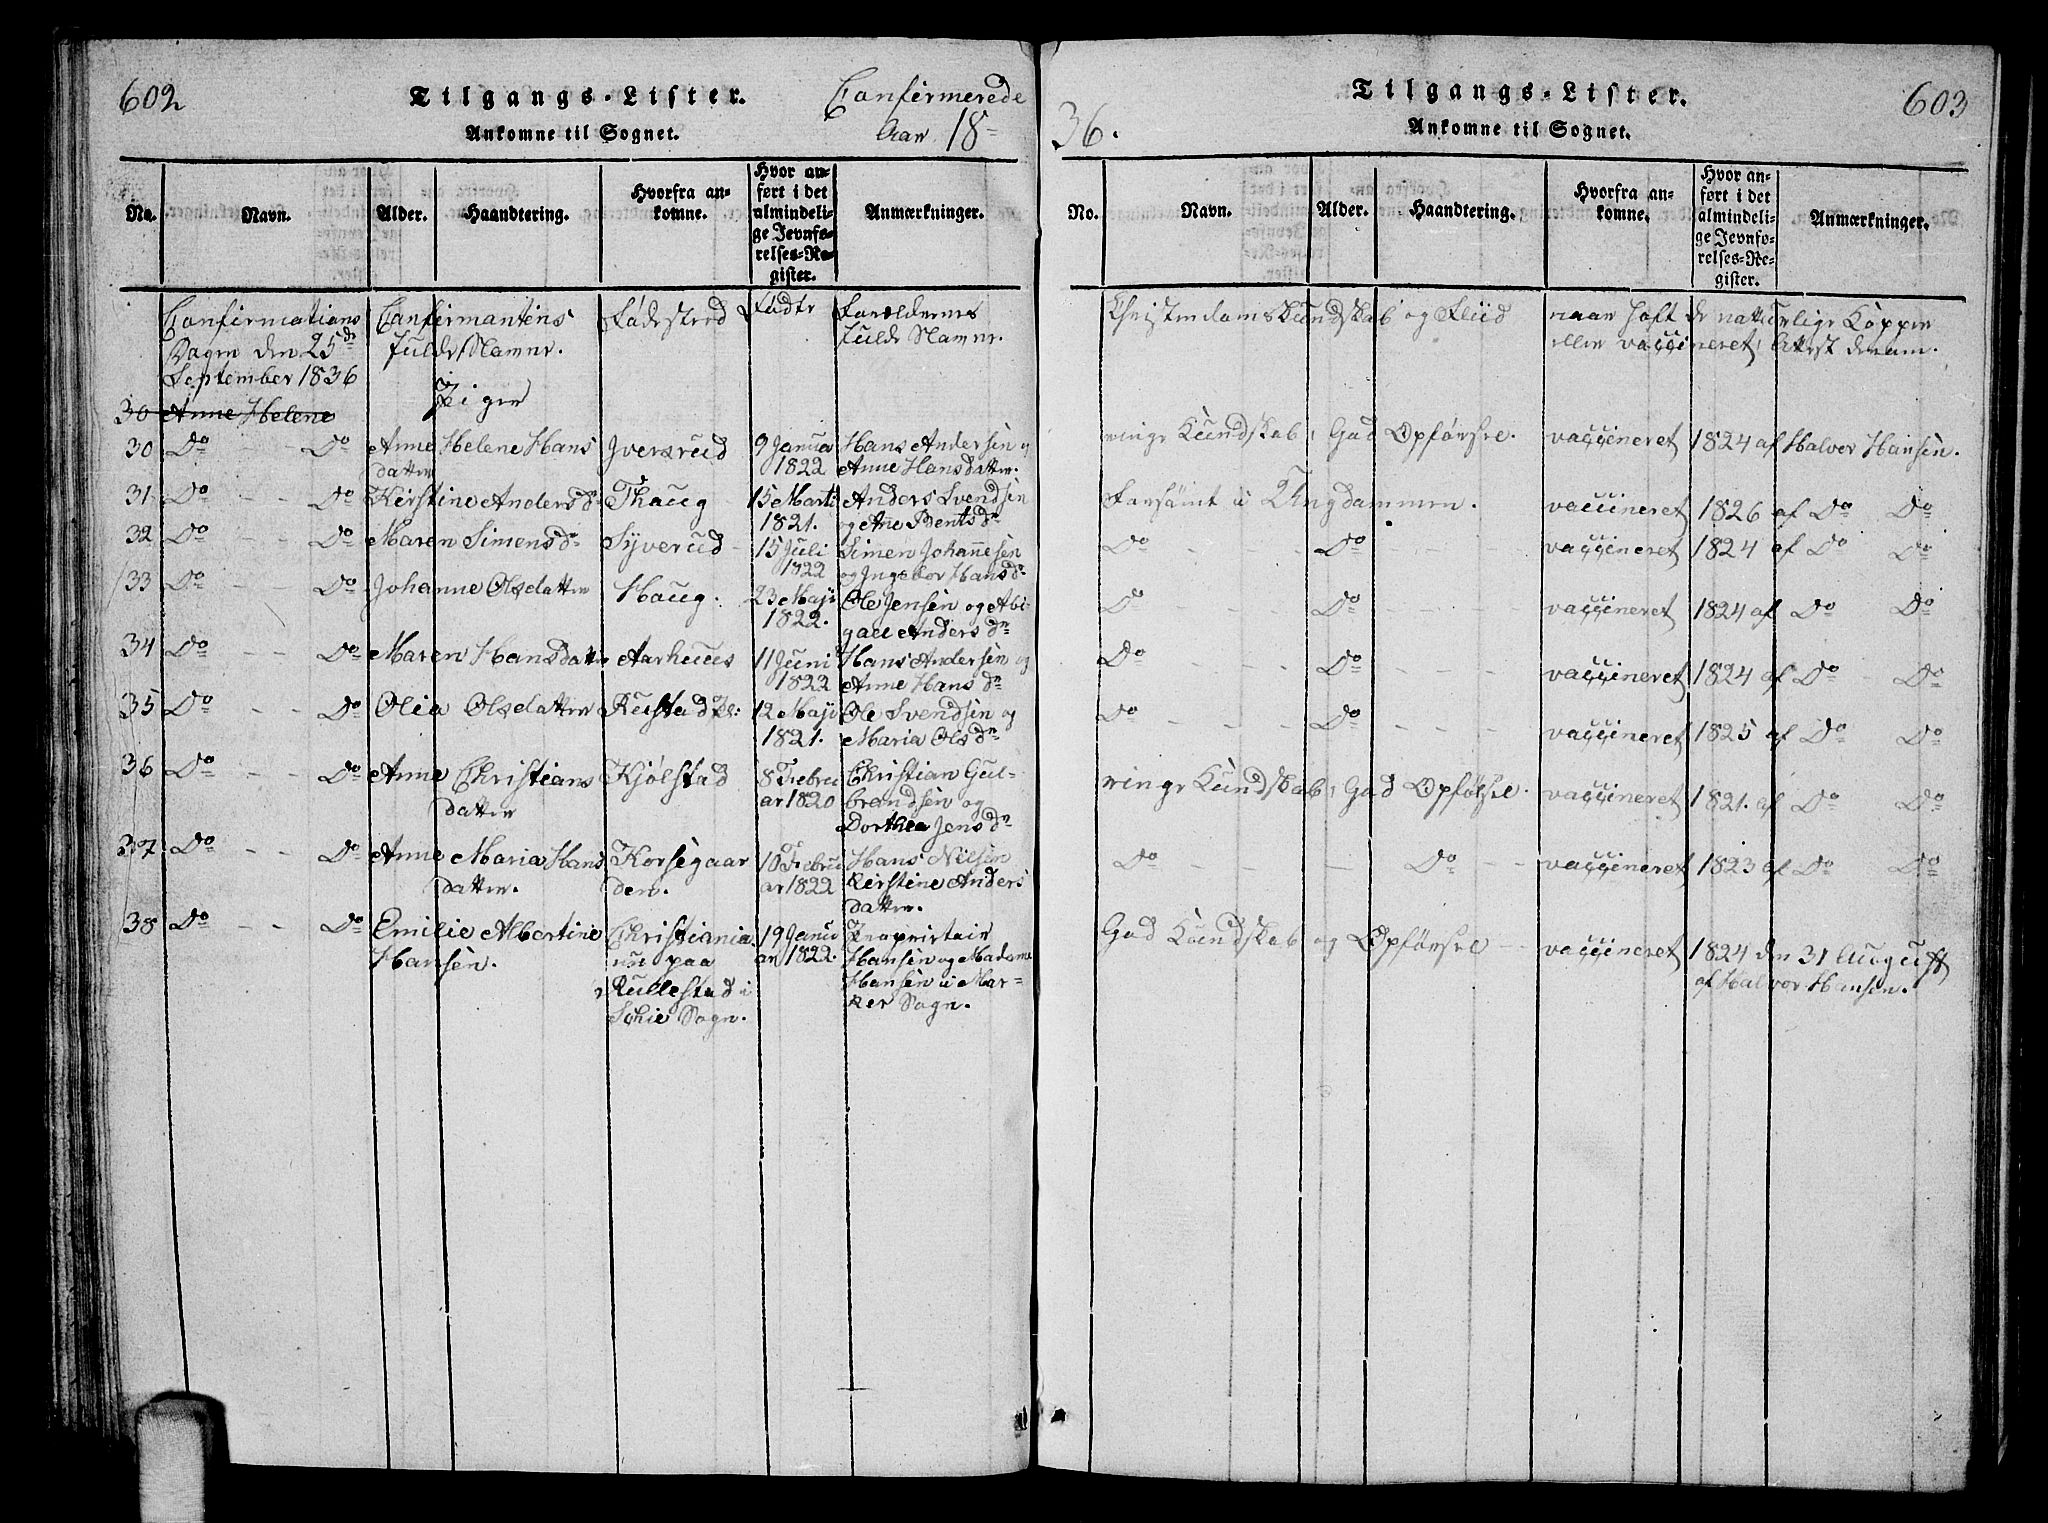 602
Tilgangs-Lister.
Confirmerede
Ankomne til Sognet.
Aar 18=
No.
Navn.
Alder.
Haandtering.
Hvorfra an-
komne.
Hvor an-
ført i det
almindeli-
ge Jevnfø-
relses-Re-
gister.
Anmærkninger.
Confirmations
Dagen den 25de
September 1836
Confirmantens
fulde Namne.
Piger
Fødested
Fødte
Forældrenes
fulde Namne.
30 Anne Helene
30 Do - Do Anne Helene Hans Iversrud 9 Janua Hans Andersen og
datter 1822 Anne Hansdatter.
31. Do - - Do Kirstine Andersd. Thaug 15 Marti Anders Svendsen
1821. og Ane Bentsdr
32 Do - - Do Maren Simensdr Syverud 15 Juli Simen Johannesen
1822 og Ingebor Hansdr
33 Do - - Do Johanne Olsdatter Haug. 23 Maji Ole Jensen og Abi
1822. gael Andersdr
34 Do - - Do Maren Hansdatter Aarhuus 11 Juni Hans Andersen og
1822 Anne Hansdr
35 Do - - Do Olia Olsdatter Rustad 12 Maji Ole Svendsen og
1821. Maria Olsdr
36 Do - - Do Anne Christians Kjølstad 8 Febru Christian Gul-
datter ar 1820 brandsen og
Dorthea Jensdr
37. Do - - Do Anne Maria Hans Korsegaar 10 Febru Hans Nilsen
datter. den. ar 1822 Kirstine Anders
datter.
38 Do - - Do Emilie Albertine Christiania 19 Janu Proprietair
Hansen. nu paa ar 1822. Hansen og Madame
Rullestad i Hansen i Mar=
Schie Sogn. ker Sogn.
36.
Tilgangs-Lister.
603
Ankomne til Sognet.
No.
Navn.
Alder.
Haandtering.
Hvorfra an-
komne.
Hvor an-
ført i det
almindeli-
ge Jevnfø-
relses-Re-
gister.
Anmærkninger.
Christendoms Kundskab og Fliid naar haft de naturlige Kopper
eller vaccineret, Attest derom.
ringe Kundskab, God Opførsel. vaccineret 1824 af Halvor Hansen.
Forsømt i Ungdommen. vaccineret 1826 af Do Do
Do - - - Do - - - vaccineret 1824 af Do Do
Do - - - Do - - - vaccineret 1824 af Do Do
Do - - - Do - - - vaccineret 1824 af Do - Do
Do - - - Do - - - vaccineret 1825 af Do Do
ringe Kundskab, God Opførsel. vaccineret 1821. af Do Do
Do - - - Do - - vaccineret 1823 af Do Do
God Kundskab og Opførsel - vaccineret 1824 den 31 August
af Halvor Hansen.